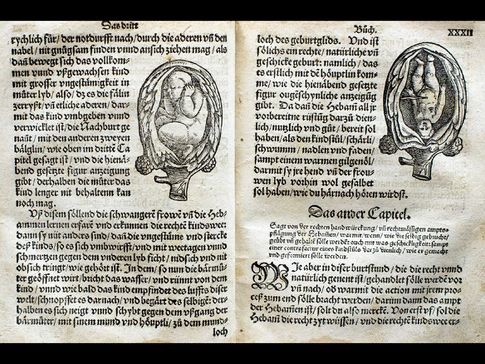 Das dritt
rychlich für/ der notdurfft nach/ durch die aderen vn̄ den
nabel/ nit gnůgsam finden vnnd ansich ziehen mag/ als
dañ bewegt sich das vollkom-
men vnnd vßgewachsen kind
mit grosser vngestümigkeit in
můter lyb/ also/ dz es die fälin
zerryßt/ vn̄ etliche aderen/ dar-
mit das kind vmbgeben vnnd
verwicklet ist/ die Nachburt ge-
nañt/ mit den anderen zweyen
bälglin/ wie oben im dritte Ca-
pitel gesagt ist/ vnd die hienäd-
gesetzte figur anzeigung
gibt/ derhalben die můter das
kind lenger nit behalten kan
noch mag.
Vß disem söllend die schwangerē frowē vn̄ die Heb-
ammen lernen erfaren vnd erkennen die rechte kindswee
die zwey anders sind/ dañ die vngestüme vnd sterckē
deß kinds/ so es sich vmbwirfft/ vnd mit weetagen vnnd
schmertzen gegen dem vnderen lyb sicht/ nidsich vnd nit
obsich tringt/ wie gehört ist. In dem/ so nun die bärmů-
ter geöffnet wirt/ bricht das wasser/ vnnd rint von dem
kind/ vnnd wie bald das kind empfindet des luffts diser
welt/ schnopfft es darnach/ vnd begärt des selbigē: der-
halben es sich neigt vnnd schybt gegen dem vßgang der
bärmůter/ mit sinem mund vnnd höuptli/ zů dem mund-
loch
Bůch.
XXXII
loch des geburtglids. Vnd ist
sölichs ein rechte/ natürliche vn̄
geschickte geburt: namlich/ das
es erstlich mit dē höuptlin kom-
me/ wie die hienäbend gesetzte
figur ougschynliche anzeigūg
gibt. Da dañ die Hebam̄ all jr
vorbereite rüstūg darzů dien-
lich/ nutzlich vnd gůt/ bereit sol
haben/ als den kindstůl/ schärli/
schwum̄/ nadlen vnd faden/
sampt einem warmen gilgenöl/
darmit sy jre hend vn̄ der frou-
wen lyb vorhin wol gesalbet
sol haben/ wie du härnach hören wirdst.
Das ander Capitel.
Sagt von der rechten handtwürckung/ vn̄ rechtmässigen ampts-
pflägung der Hebam̄en/ was/ wenn/ wie die selbig gebrucht/
geübt vn̄ gehalt sölle werdē/ ouch mit was geschicklikeit: sampt
einer contrafactur eines kindstůls dar zů dienlich/ wie er gemacht
und geformiert sölle werden.
Wie aber in diser burtstund/ die die recht vnd
natürlich genent ist/ gehandlet sölle werdē vor
vn̄ nach/ ob vn̄ warmit die action mit jrem pro-
ceß zum end sölle bracht werden/ darinn dann das ampt
der Hebam̄en ist/ solt du also mercken. Von erst vß/ sol die
Hebam̄ die recht zyt wüssen/ vnd die rechtē kindswee er-